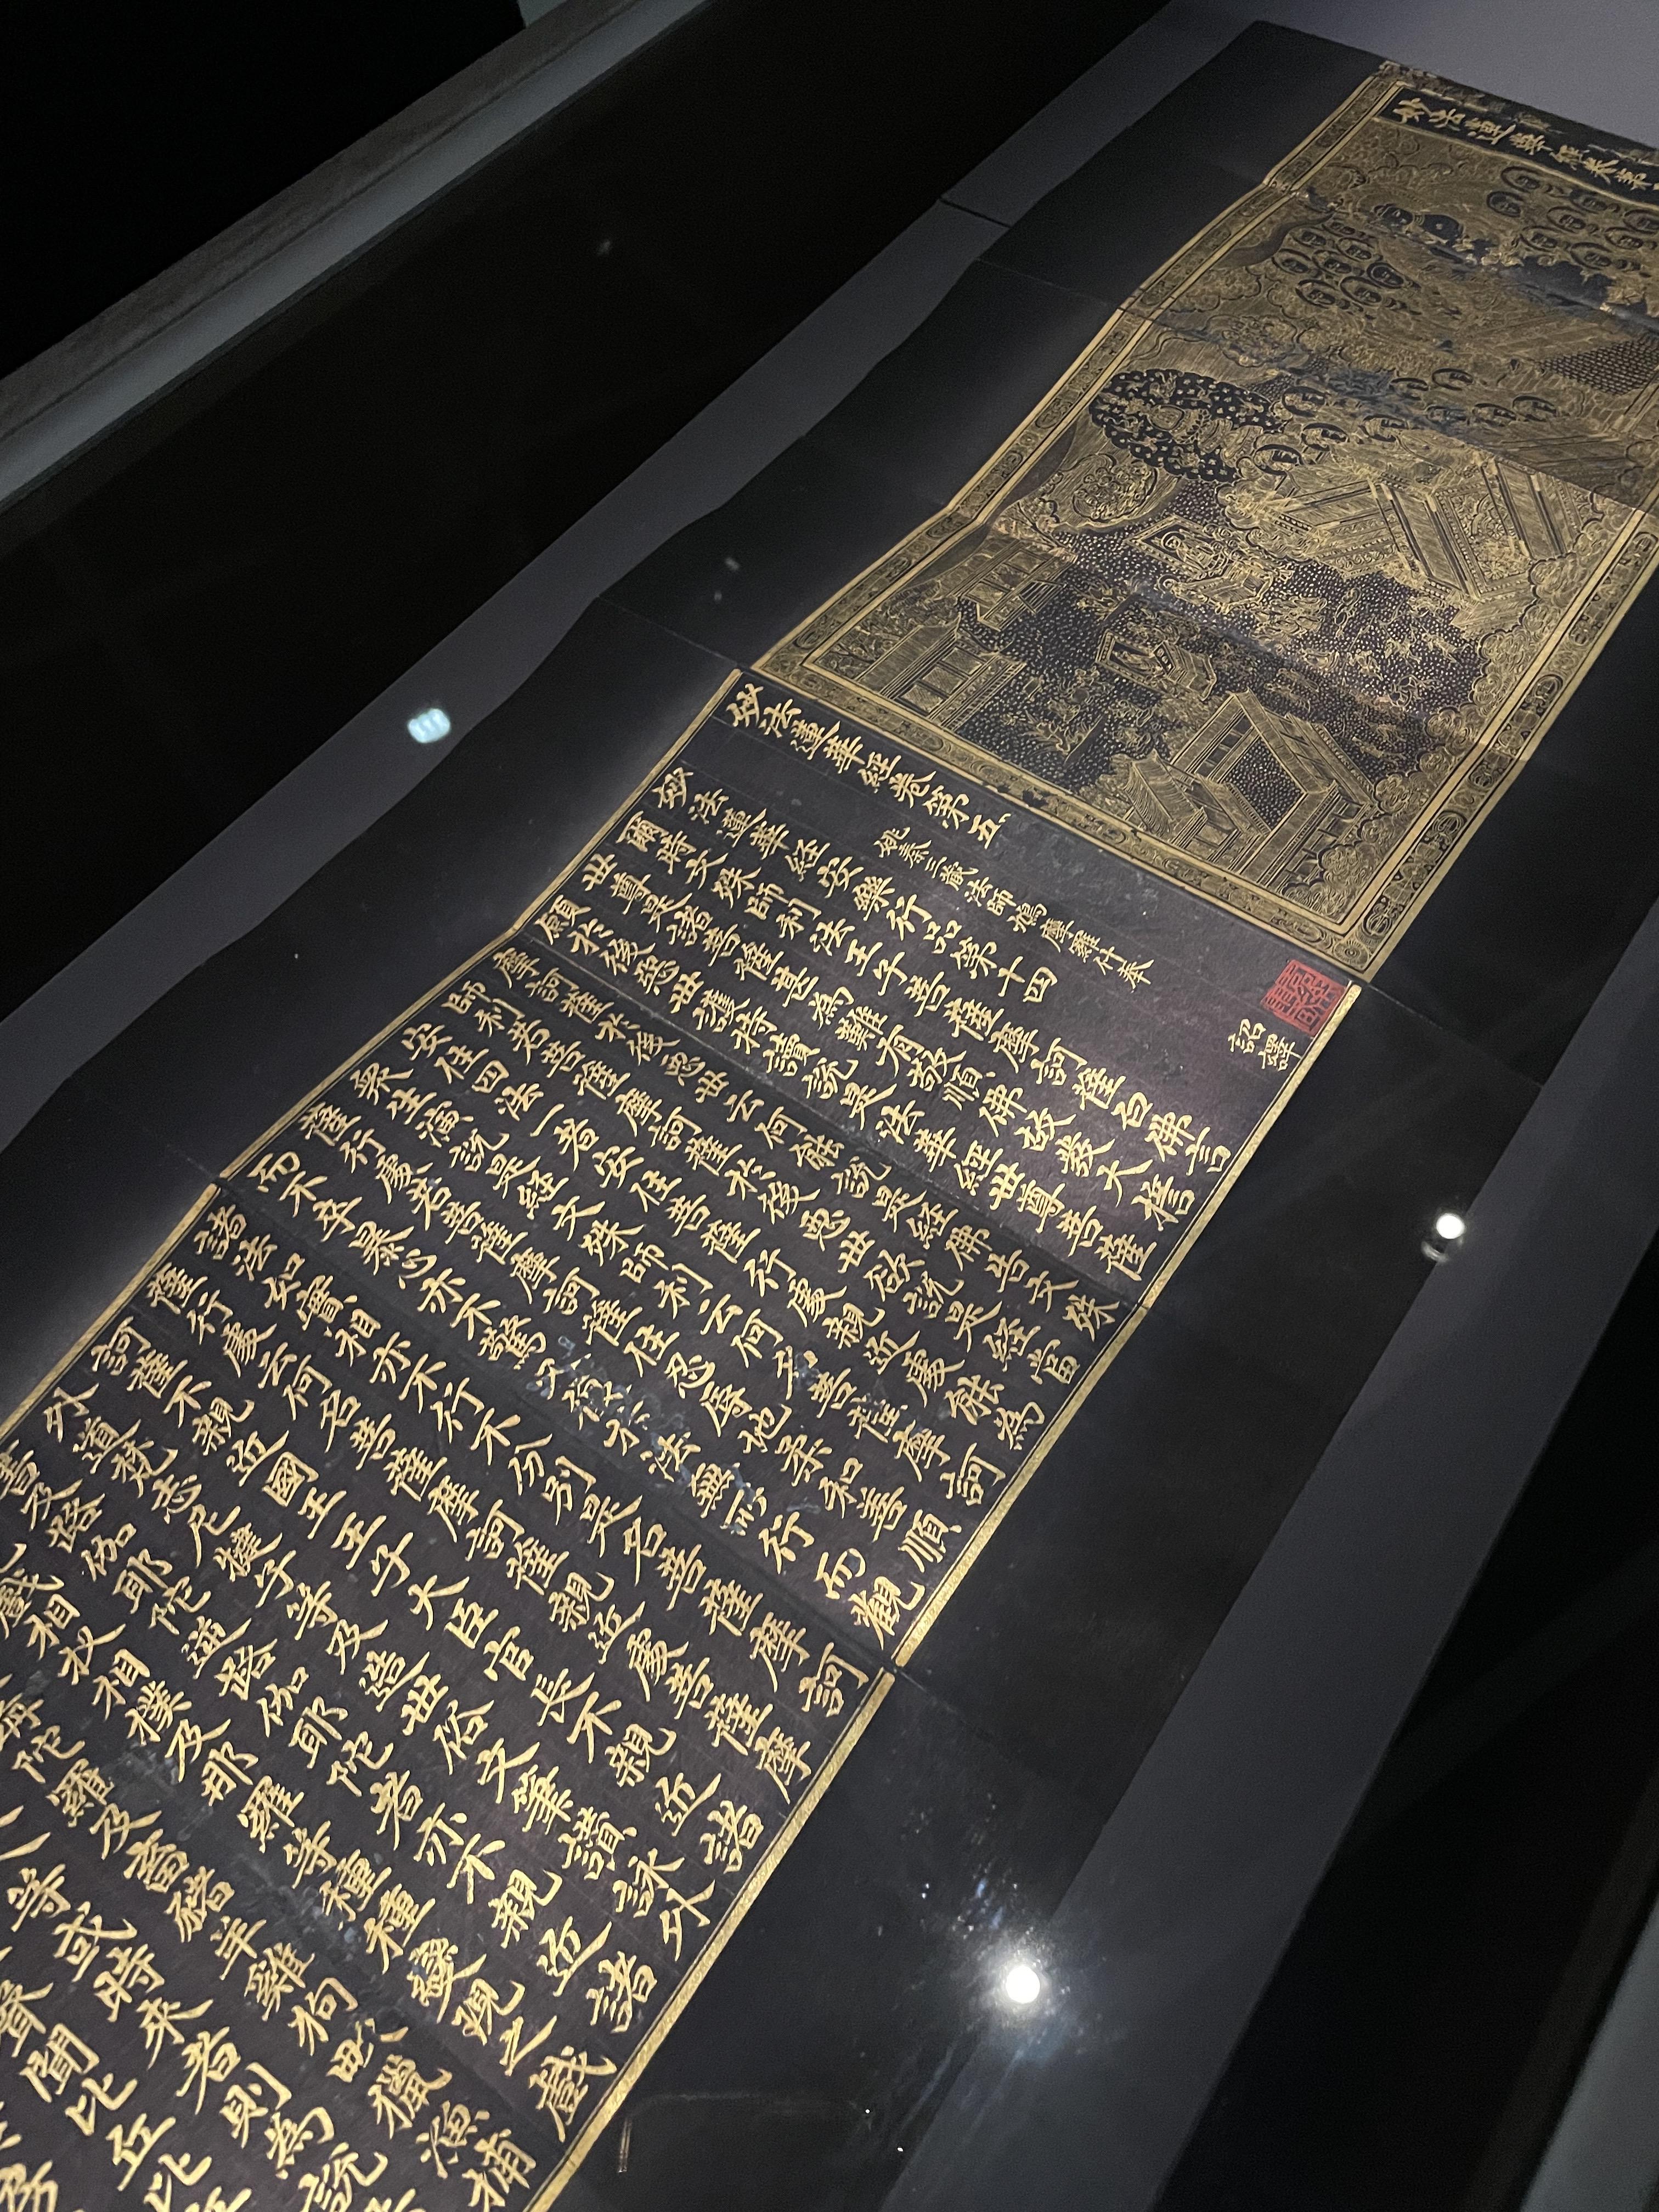 妙法蓮華經卷第
妙法蓮華經卷第五
姚秦三藏法師鳩摩羅什奉 詔譯
妙法蓮華經安樂行品第十四
爾時文殊師利法王子菩薩摩訶薩白佛言
世尊是諸菩薩甚為難有敬順佛故發大誓
願於後惡世護持讀說是法華經世尊菩薩
摩訶薩於後惡世云何能說是經佛告文殊
師利若菩薩摩訶薩於後惡世欲說是經當
安住四法一者安住菩薩行處親近處能為
眾生演說是經文殊師利云何名菩薩摩訶
薩行處若菩薩摩訶薩住忍辱地柔和善順
而不卒暴心亦不驚又復於法無所行而觀
諸法如實相亦不行不分別是名菩薩摩訶
薩行處云何名菩薩摩訶薩親近處菩薩摩
訶薩不親近國王王子大臣官長不親近諸
外道梵志尼揵子等及造世俗文筆讚詠外
書及路伽耶陀逆路伽耶陀者亦不親近諸
戲相扠相撲及那羅等種種變現之戲
旃陀羅及畜豬羊雞狗畋獵漁捕
等或時來者則為說
聲聞比丘比